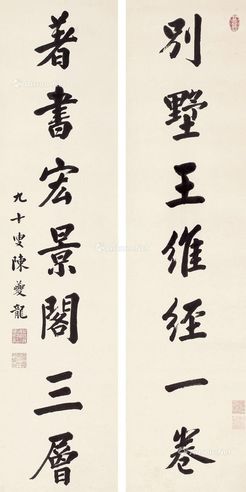 别墅王維經一卷
著書宏景閣三層
九十叟陳夔龍